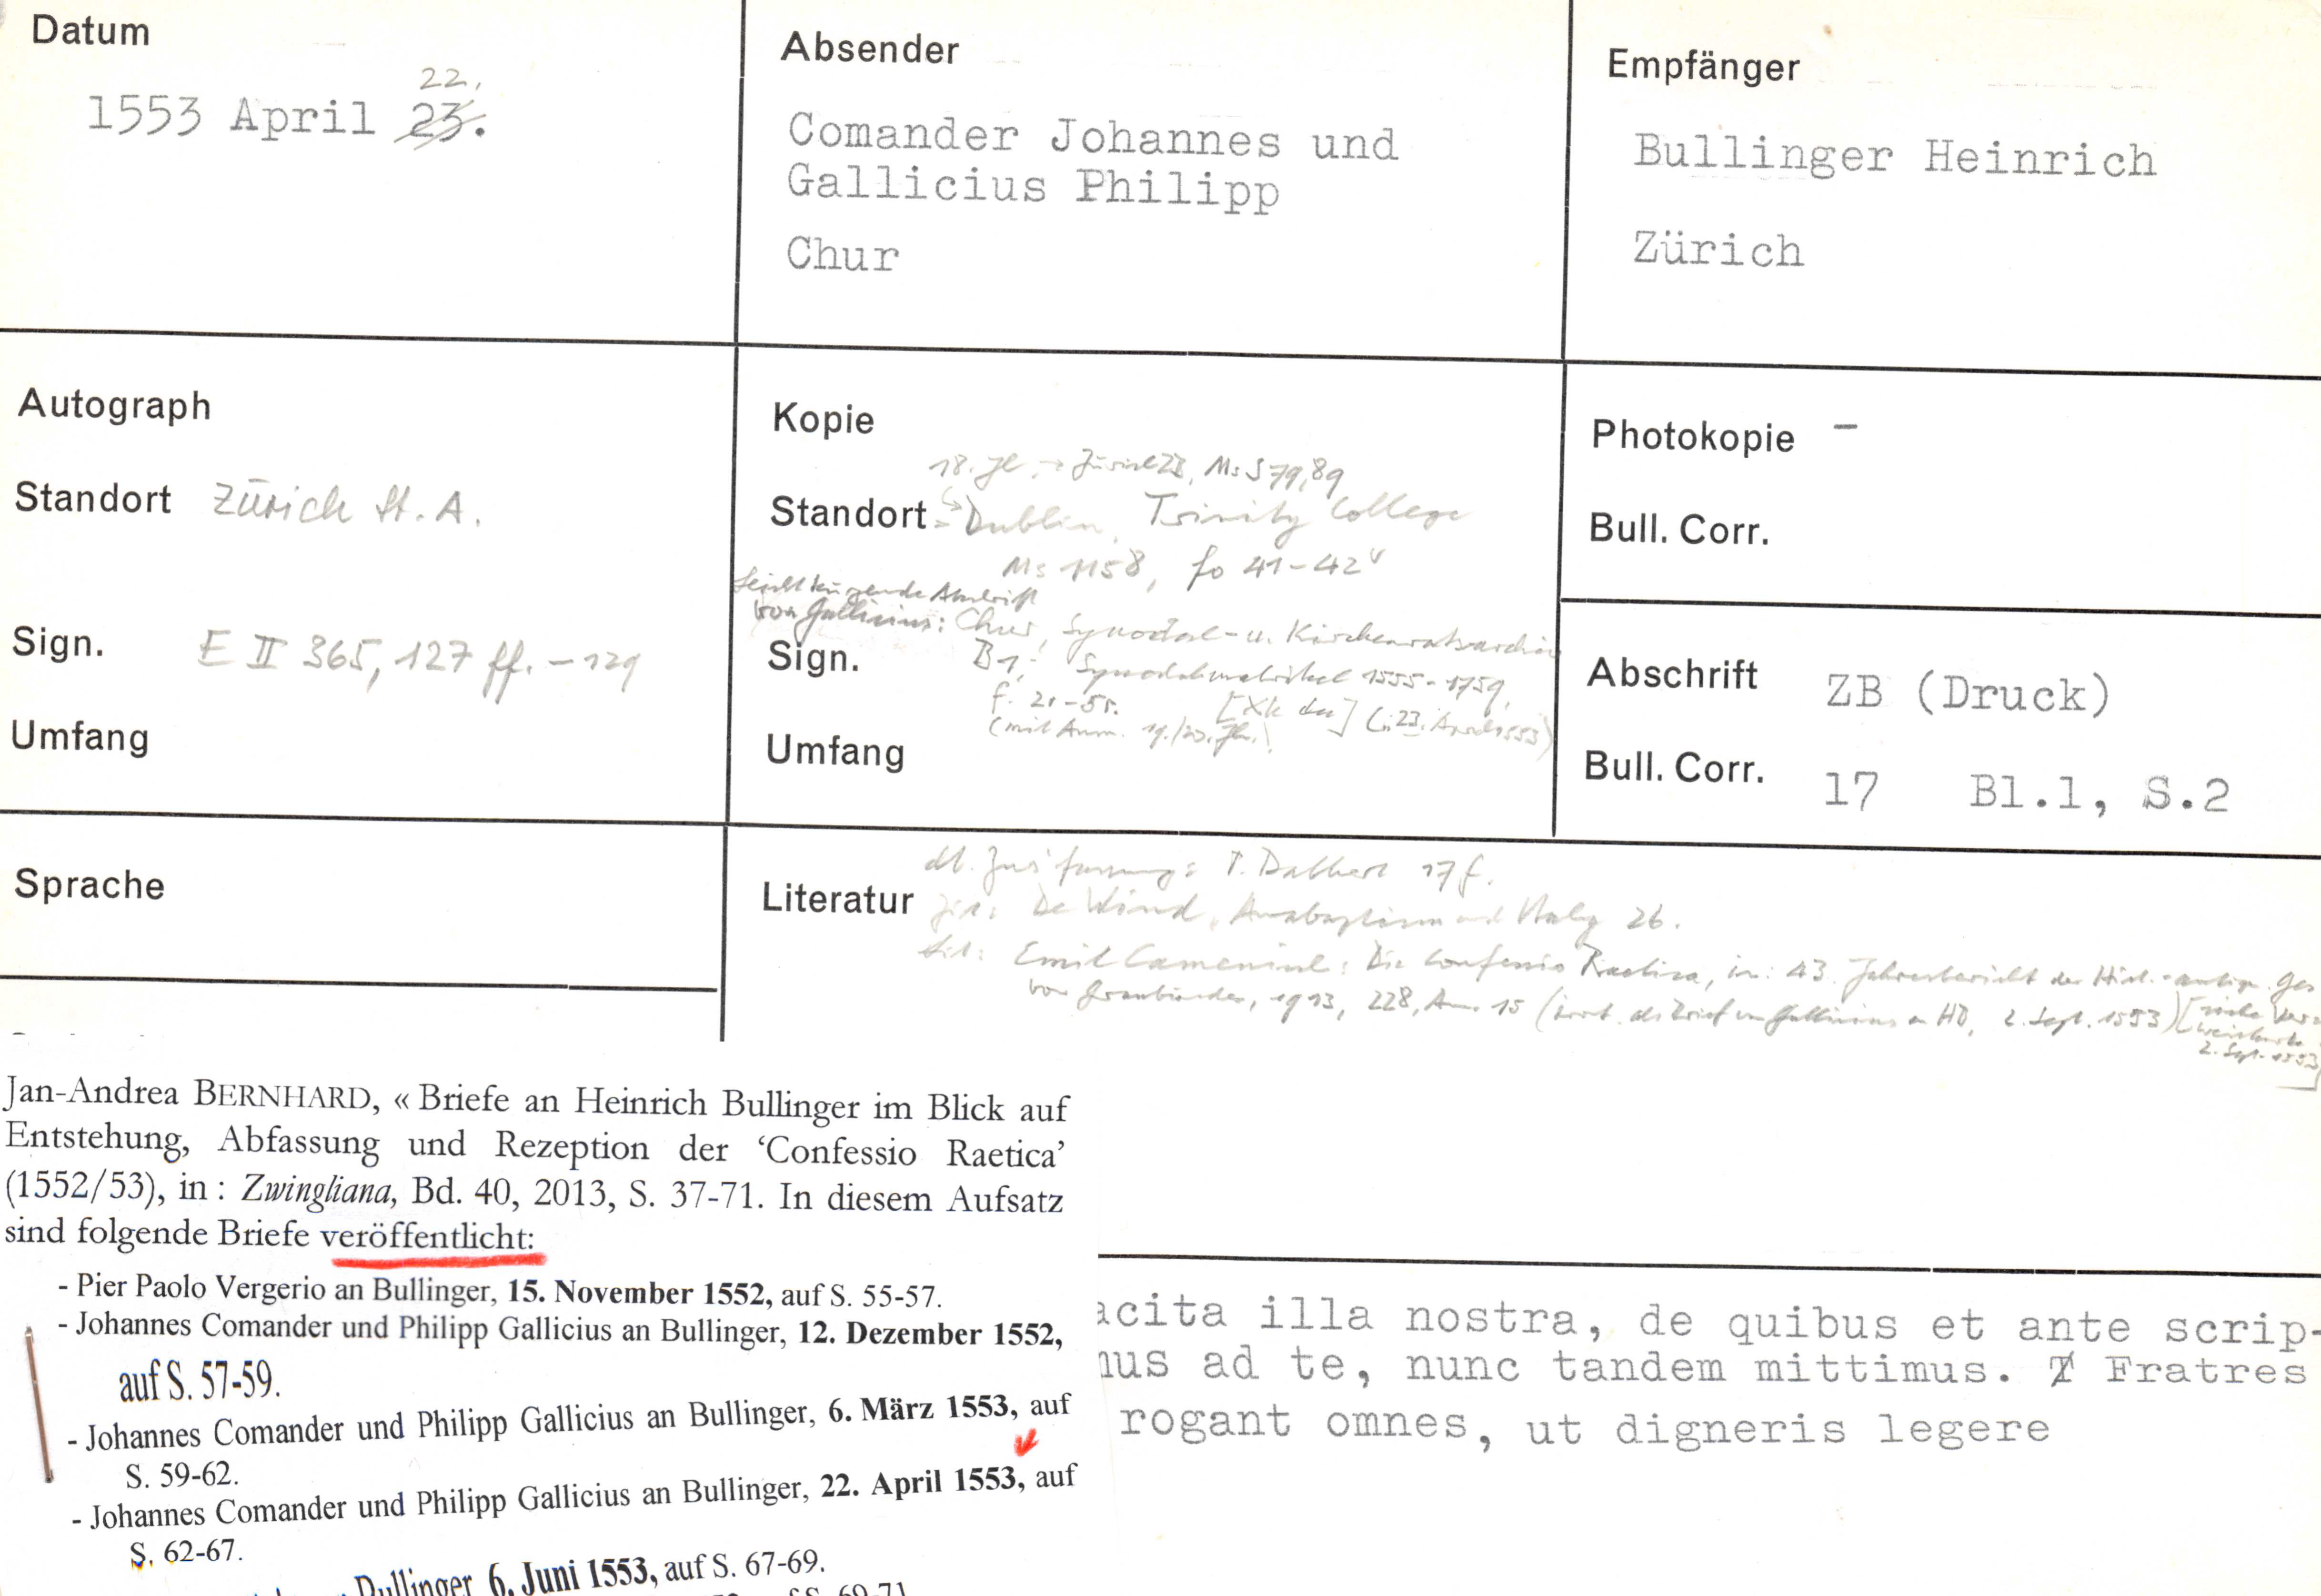 Datum
22.
1553 April 23.
Absender
Comander Johannes und
Gallicius Philipp
Chur
Empfänger
Bullinger Heinrich
Zürich
Autograph
Standort Zürich St. A.
Sign. E II 365, 127 ff. - 129
Umfang
Kopie
18. Jh. → Zürich ZB, Ms S 79, 89
Standort Dublin, Trinity College
Ms 1158, fo 41-42v
von Gallicius: Chur, Synodal- u. Kirchenratsarchiv
Sign. B 1,
(mit Anm. 19./20. Jh.) (: 23. April 1553)
Umfang
Photokopie –
Bull. Corr.
Abschrift ZB (Druck)
Bull. Corr. 17 Bl.1, S.2
Sprache
Literatur
T. Dalbert 17 f.
De Wind, Anabaptism and Italy 26.
Emil Camenisch: Die Confessio Raetica, in: 43. Jahresbericht der Hist.-antiq. Ges
von Graubünden, 1913, 228, Anm. 15 (irrt. als Brief von Gallicius an HB, 2. Sept. 1553)
2. Sept. 1553]
Jan-Andrea BERNHARD, « Briefe an Heinrich Bullinger im Blick auf
Entstehung, Abfassung und Rezeption der ‘Confessio Raetica’
(1552/53), in : Zwingliana, Bd. 40, 2013, S. 37-71. In diesem Aufsatz
sind folgende Briefe veröffentlicht:
- Pier Paolo Vergerio an Bullinger, 15. November 1552, auf S. 55-57.
- Johannes Comander und Philipp Gallicius an Bullinger, 12. Dezember 1552,
auf S. 57-59.
- Johannes Comander und Philipp Gallicius an Bullinger, 6. März 1553, auf
S. 59-62.
- Johannes Comander und Philipp Gallicius an Bullinger, 22. April 1553, auf
S. 62-67.
Bullinger, 6. Juni 1553, auf S. 67-69.
acita illa nostra, de quibus et ante scrip-
mus ad te, nunc tandem mittimus. Fratres
rogant omnes, ut digneris legere